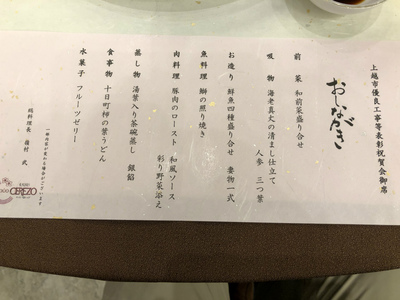 上越市優良工事等表彰祝賀会御席
おしながき
前菜 和前菜盛り合せ
吸物 海老真丈の清まし仕立て
人参 三つ葉
お造り 鮮魚四種盛り合せ 妻物一式
魚料理 鰤の照り焼き
肉料理 豚肉のロースト 和風ソース
彩り野菜添え
蒸し物 湯葉入り茶碗蒸し 銀餡
食事物 十日町布の葉うどん
水菓子 フルーツゼリー
一部内容が変わる場合がございます
総料理長
CEREZO